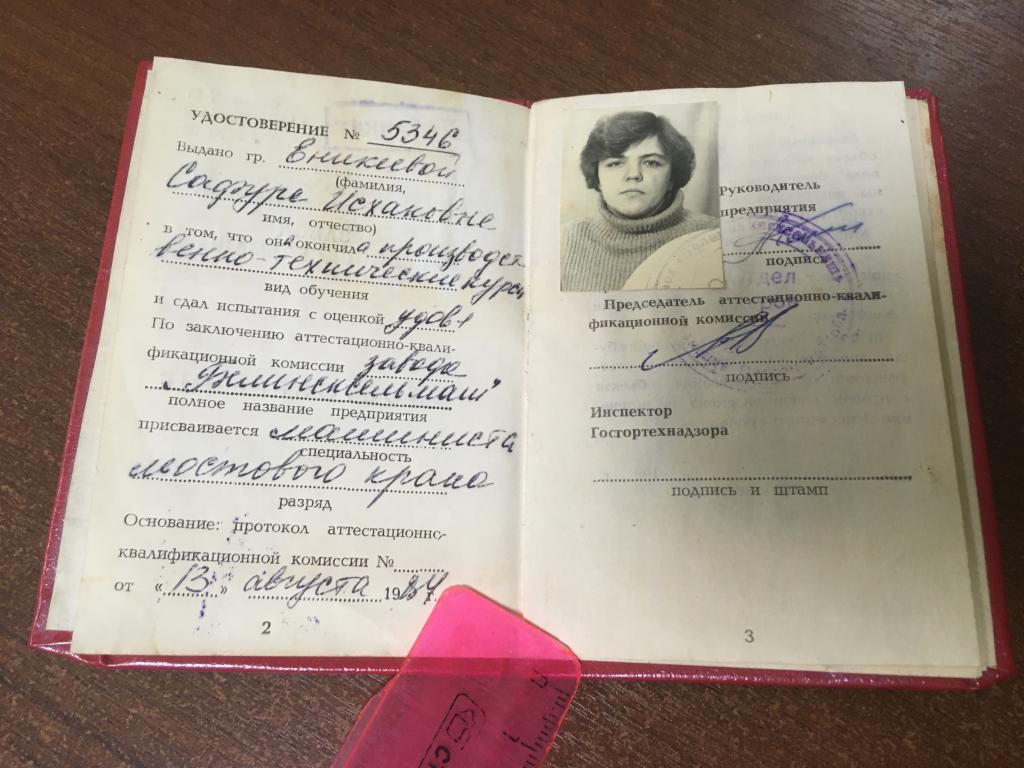 УДОСТОВЕРЕНИЕ № 5346
Выдано гр. Еникеевой
(фамилия,
Сафуре Исхаковне
имя, отчество)
в том, что она окончила производст
венно-технические курсы
вид обучения
и сдал испытания с оценкой удов-
По заключению аттестационно-квали-
фикационной комиссии завода
полное название предприятия
присваивается машиниста
специальность
мостового крана
разряд
Основание: протокол аттестационно-
квалификационной комиссии №
от «13» августа 1984
2
Руководитель
предприятия
подпись
Председатель аттестационно-квали-
фикационной комиссии
подпись
Инспектор
Госгортехнадзора
подпись и штамп
3